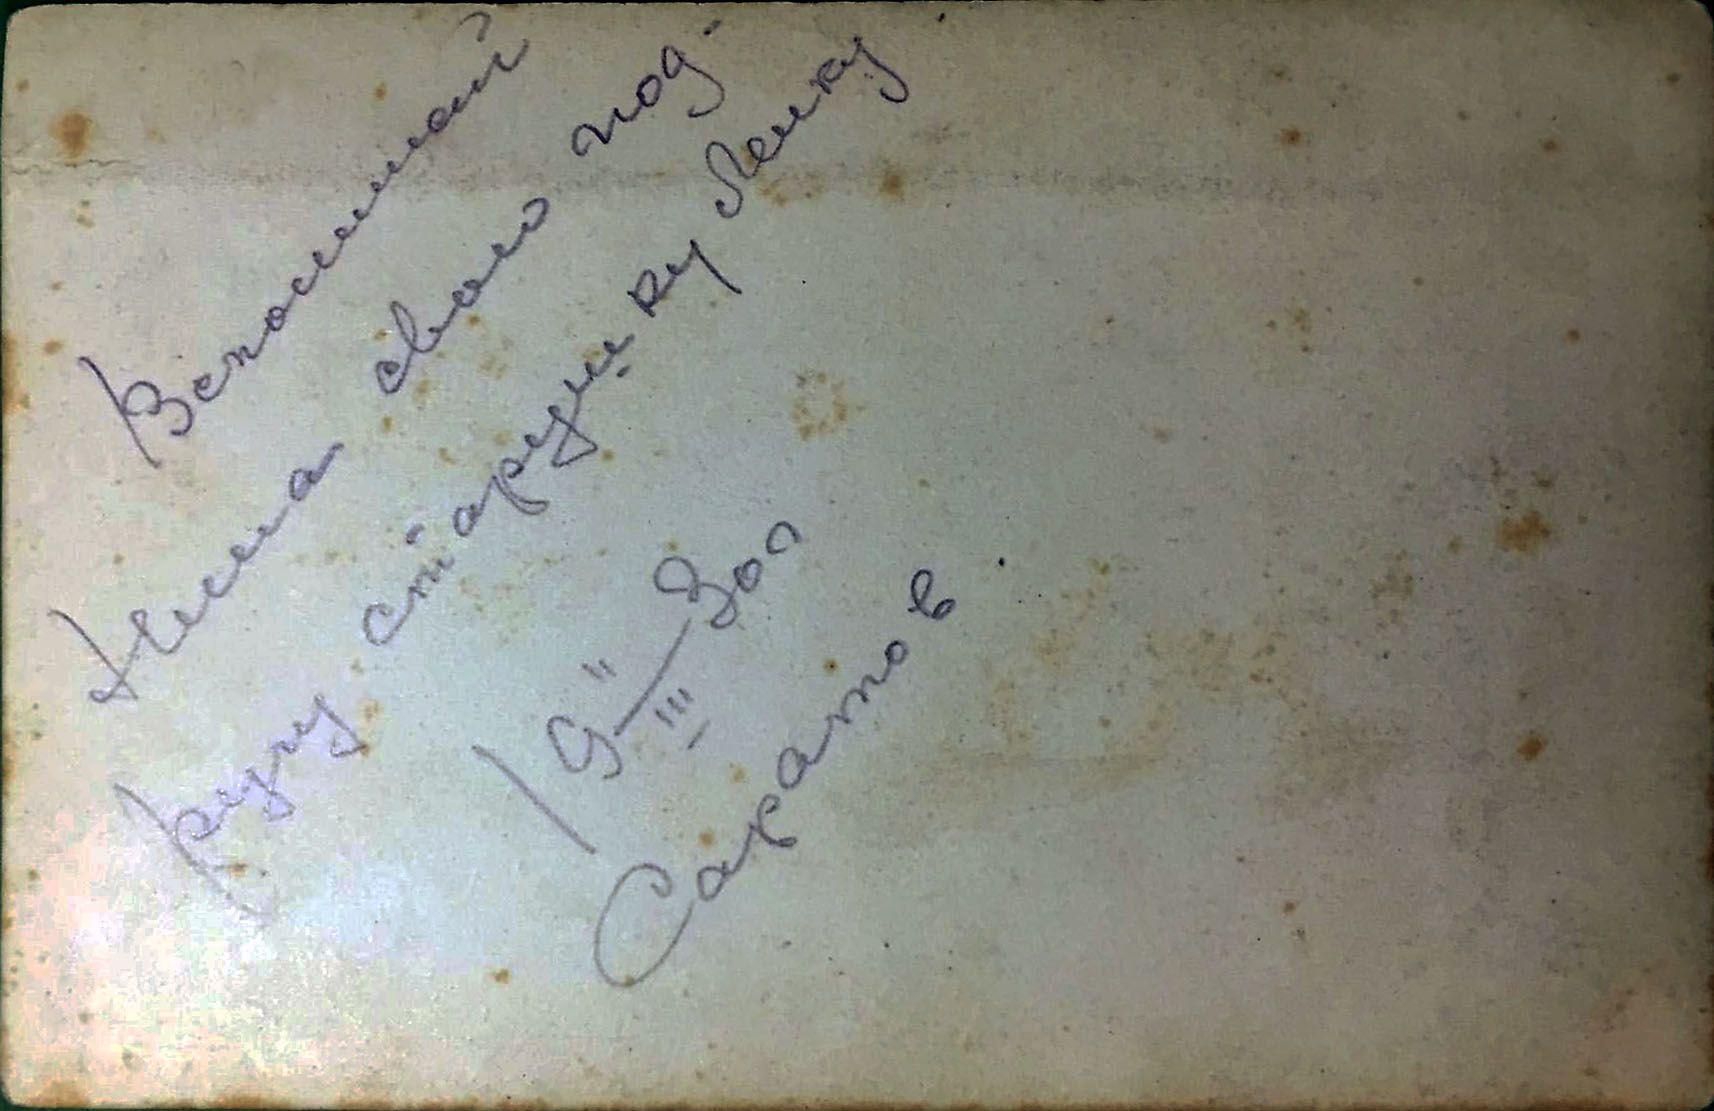 Вспоминай
Нина свою под-
ругу старушку Ленку
19"/III 30г
Саратов.